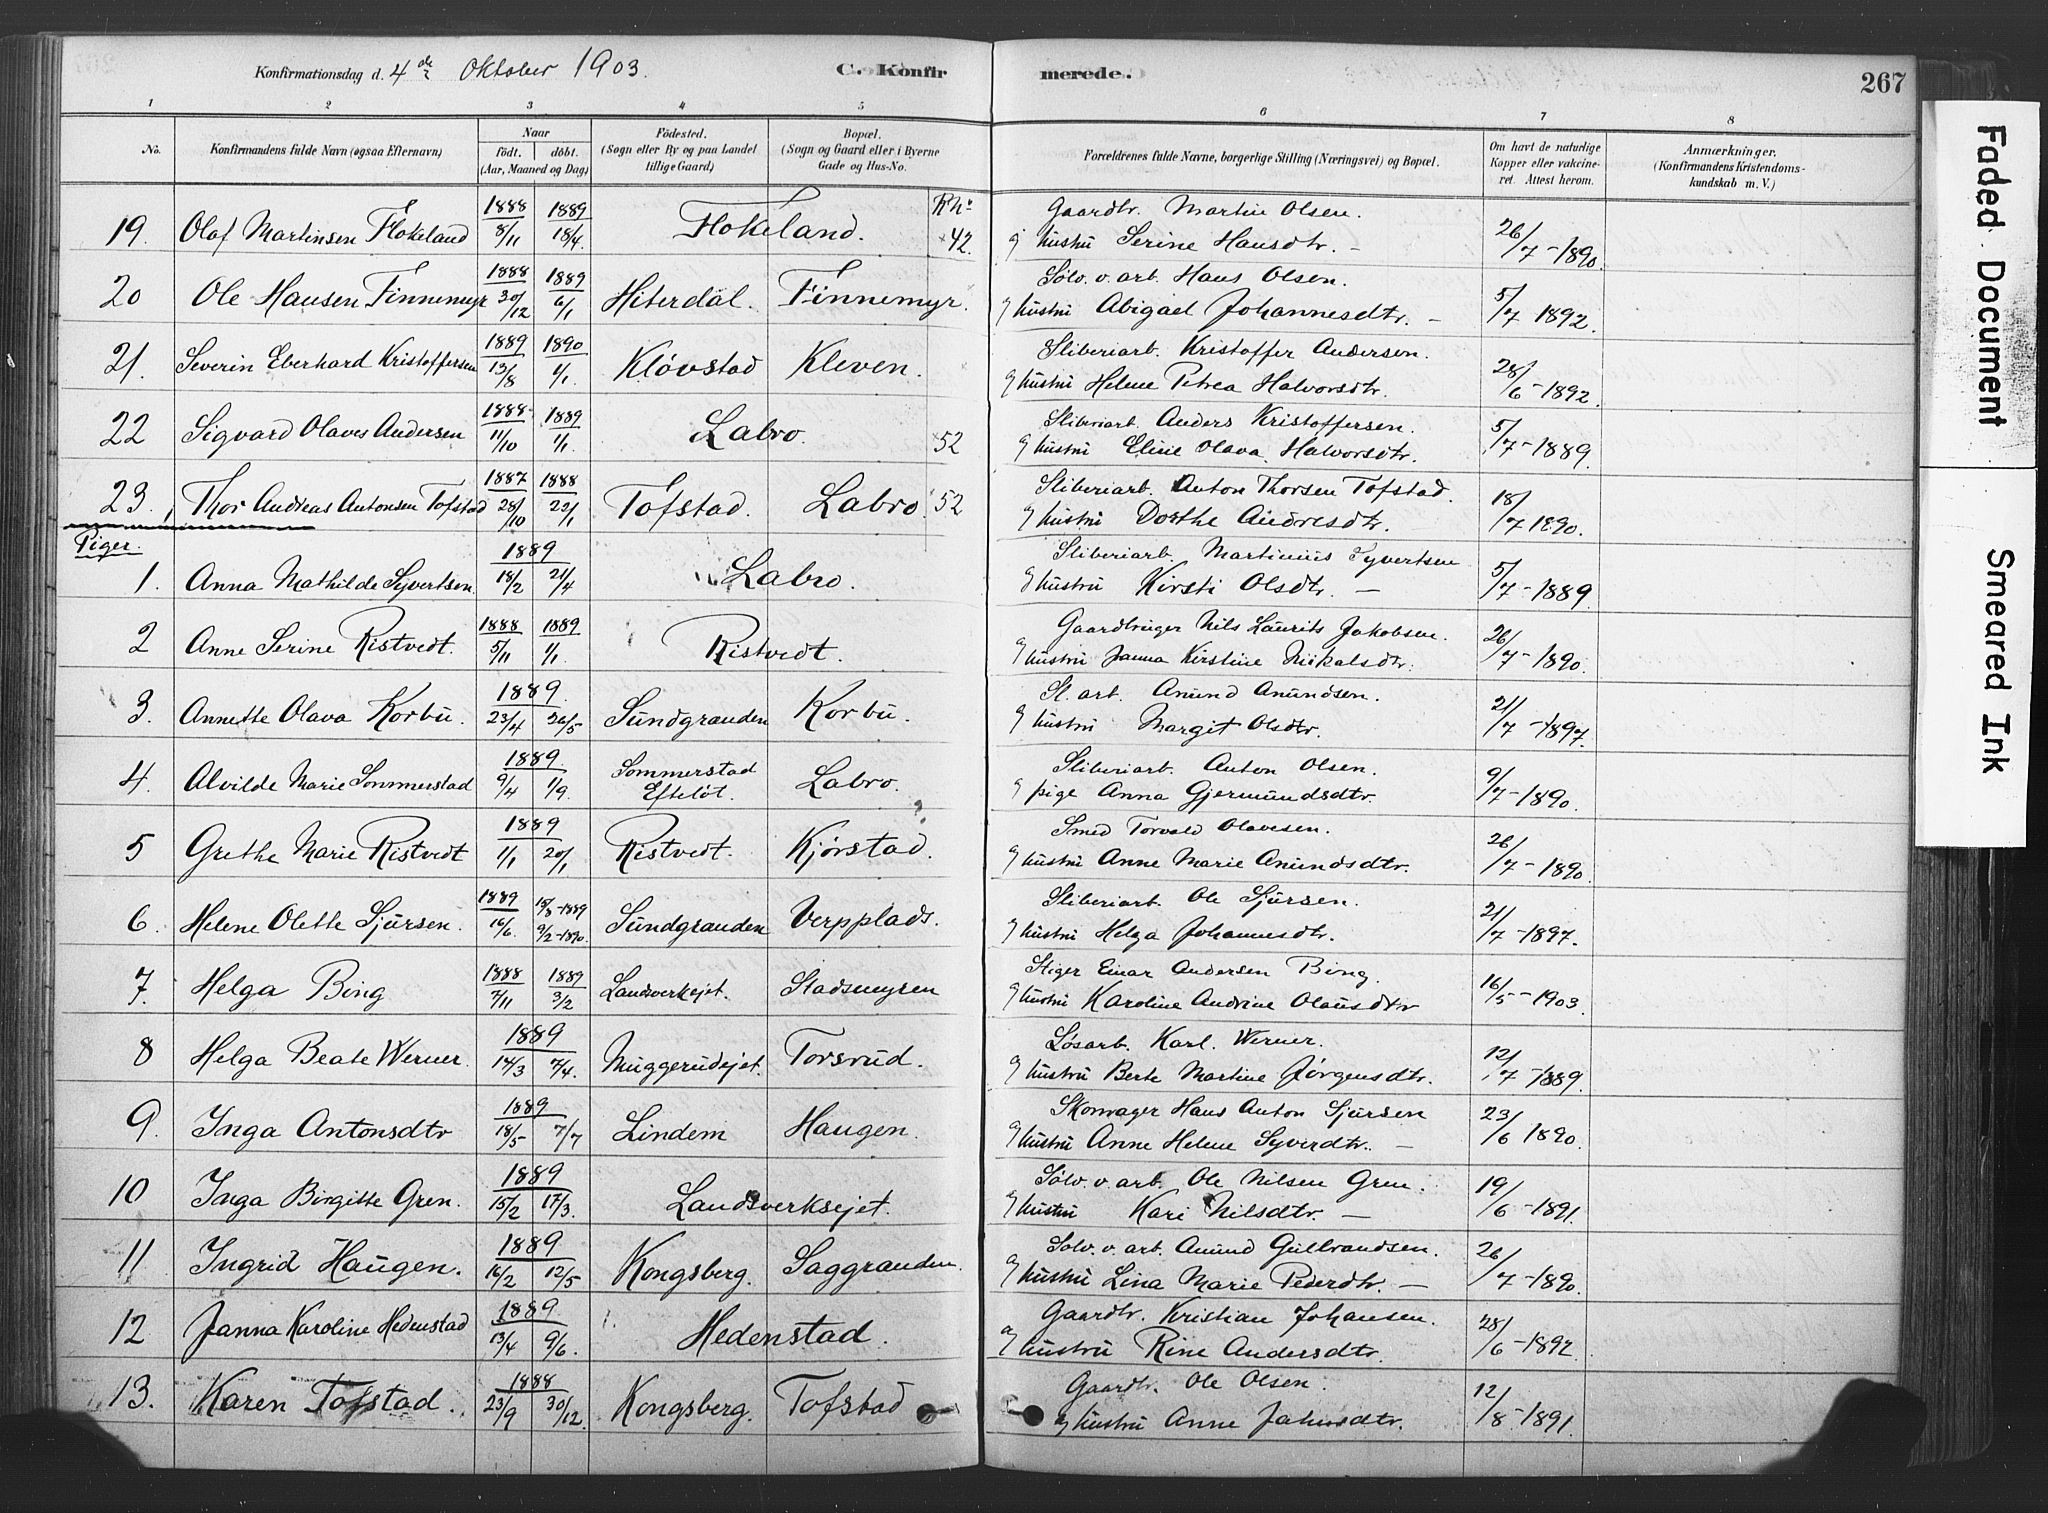 Konfirmationsdag d. 4de Oktober 1903.
C. Konfirmerede.
267
1 2 3 4 5 6 7 8
No.
Konfirmandens fulde Navn (ogsaa Efternavn)
Naar
født. døbt.
(Aar, Maaned og Dag)
Fødested.
(Sogn eller By og paa Landet
tillige Gaard)
Bopæl.
(Sogn og Gaard eller i Byerne
Gade og Hus-No.
Forældrenes fulde Navne, borgerlige Stilling (Næringsvei) og Bopæl.
Om havt de naturlige
Kopper eller vakcine-
ret. Attest herom.
Anmærkninger.
(Konfirmandens Kristendoms-
kundskab m. V.)
19. Olaf Martinsen Flokeland 1888 8/11 1889 18/4. Flokeland. 42. Gaardbr. Martin Olsen.
og hustru Serine Hansdtr. — 26/7-1890.
20 Ole Hansen Finnemyr 1888 30/12 1889 6/1 Hiterdal. Finnemyr. Sølv. v. arb. Hans Olsen.
og hustru Abigael Johannesdtr. — 5/7 1892.
21. Severin Eberhard Kristoffersen 1889 13/8 1890 1/1. Kløvstad Kleven. Sliberiarb. Kristoffer Andersen.
og hustru Helene Petrea Halvorsdtr. 28/6-1892.
22 Sigvard Olaves Andersen 1888 11/10 1889 1/1 Labro. 52 Sliberiarb. Anders Kristoffersen.
og hustru Eline Olava Halvorsdtr. 5/7-1889.
23. Thor Andreas Antonsen Tofstad 1887 28/10 1888 22/1 Tofstad. Labro 52 Sliberiarb. Anton Thorsen Tofstad.
og hustru Dorthe Andresdtr. 18/7 1890.
Piger.
1. Anna Mathilde Syvertsen. 1889 18/2 21/4 Labro. Sliberiarb. Martinius Syvertsen
og hustru Kirsti Olsdtr. — 5/7-1889.
2 Anne Serine Ristvedt. 1888 5/11 1889 1/1. Ristvedt. Gaardbruger Nils Laurits Jakobsen.
og hustru Janna Kirstine Nikolsdtr. 26/7-1890.
3. Annette Olava Korbu. 1889. 23/4 26/5 Sundgranden Korbu. Sl. arb. Anund Anundsen.
og hustru Margit Olsdtr. 21/7-1897.
4. Alvilde Marie Sommerstad 1889. 9/4 1/9. Sommerstad Efteløt. Labro. Sliberiarb. Anton Olsen.
og pige Anna Gjermundsdtr. 9/7-1890.
5 Grethe Marie Ristvedt 1889 1/1 20/1 Ristvedt. Kjørstad. Smed Torvald Olavesen.
og hustru Anne Marie Anundsdtr. 26/7-1890.
6. Helene Olette Sjursen. 1889 16/6. 15/8-1889 9/2-1890. Sundgranden Verpplads. Sliberiarb. Ole Sjursen.
og hustru Helga Johannesdtr. 21/7-1897.
7. Helga Bing 1888 7/11 1889 3/2 Landsverksejet. Stadsmyren Stiger Einar Andersen Bing.
og hustru Karoline Andrine Olausdtr 16/5-1903.
8 Helga Beate Werner. 1889 14/3 7/4. Muggerudejet. Torsrud. Løsarb. Karl Werner.
og hustru Berte Martine Jørgensdtr. 12/7-1889.
9. Inga Antonsdtr 1889 18/5 7/7 Lindem Haugen. Skomager Hans Anton Sjursen
og hustru Anne Helene Syverdtr. — 23/6 1890.
10 Inga Birgitte Gren. 1889 15/2 17/3. Landsverksejet. Sølv. v. arb. Ole Nilsen Gren.
og hustru Kari Nilsdtr. — 19/6-1891.
11 Ingrid Haugen. 1889 16/2 12/5 Kongsberg. Saggranden. Sølv. v. arb. Anund Gulbrandsen.
og hustru Lina Marie Pedersdtr. — 26/7-1890.
12 Janna Karoline Hedenstad 1889 13/4 9/6. Hedenstad. Gaardbr. Kristian Johansen.
og hustru Rine Andersdtr. 28/6-1892.
13. Karen Tofstad. 1888 23/9 30/12. Kongsberg. Tofstad Gaardbr. Ole Olsen.
og hustru Anne Jahnsdtr. 12/8-1891.
Faded Document
Smeared Ink